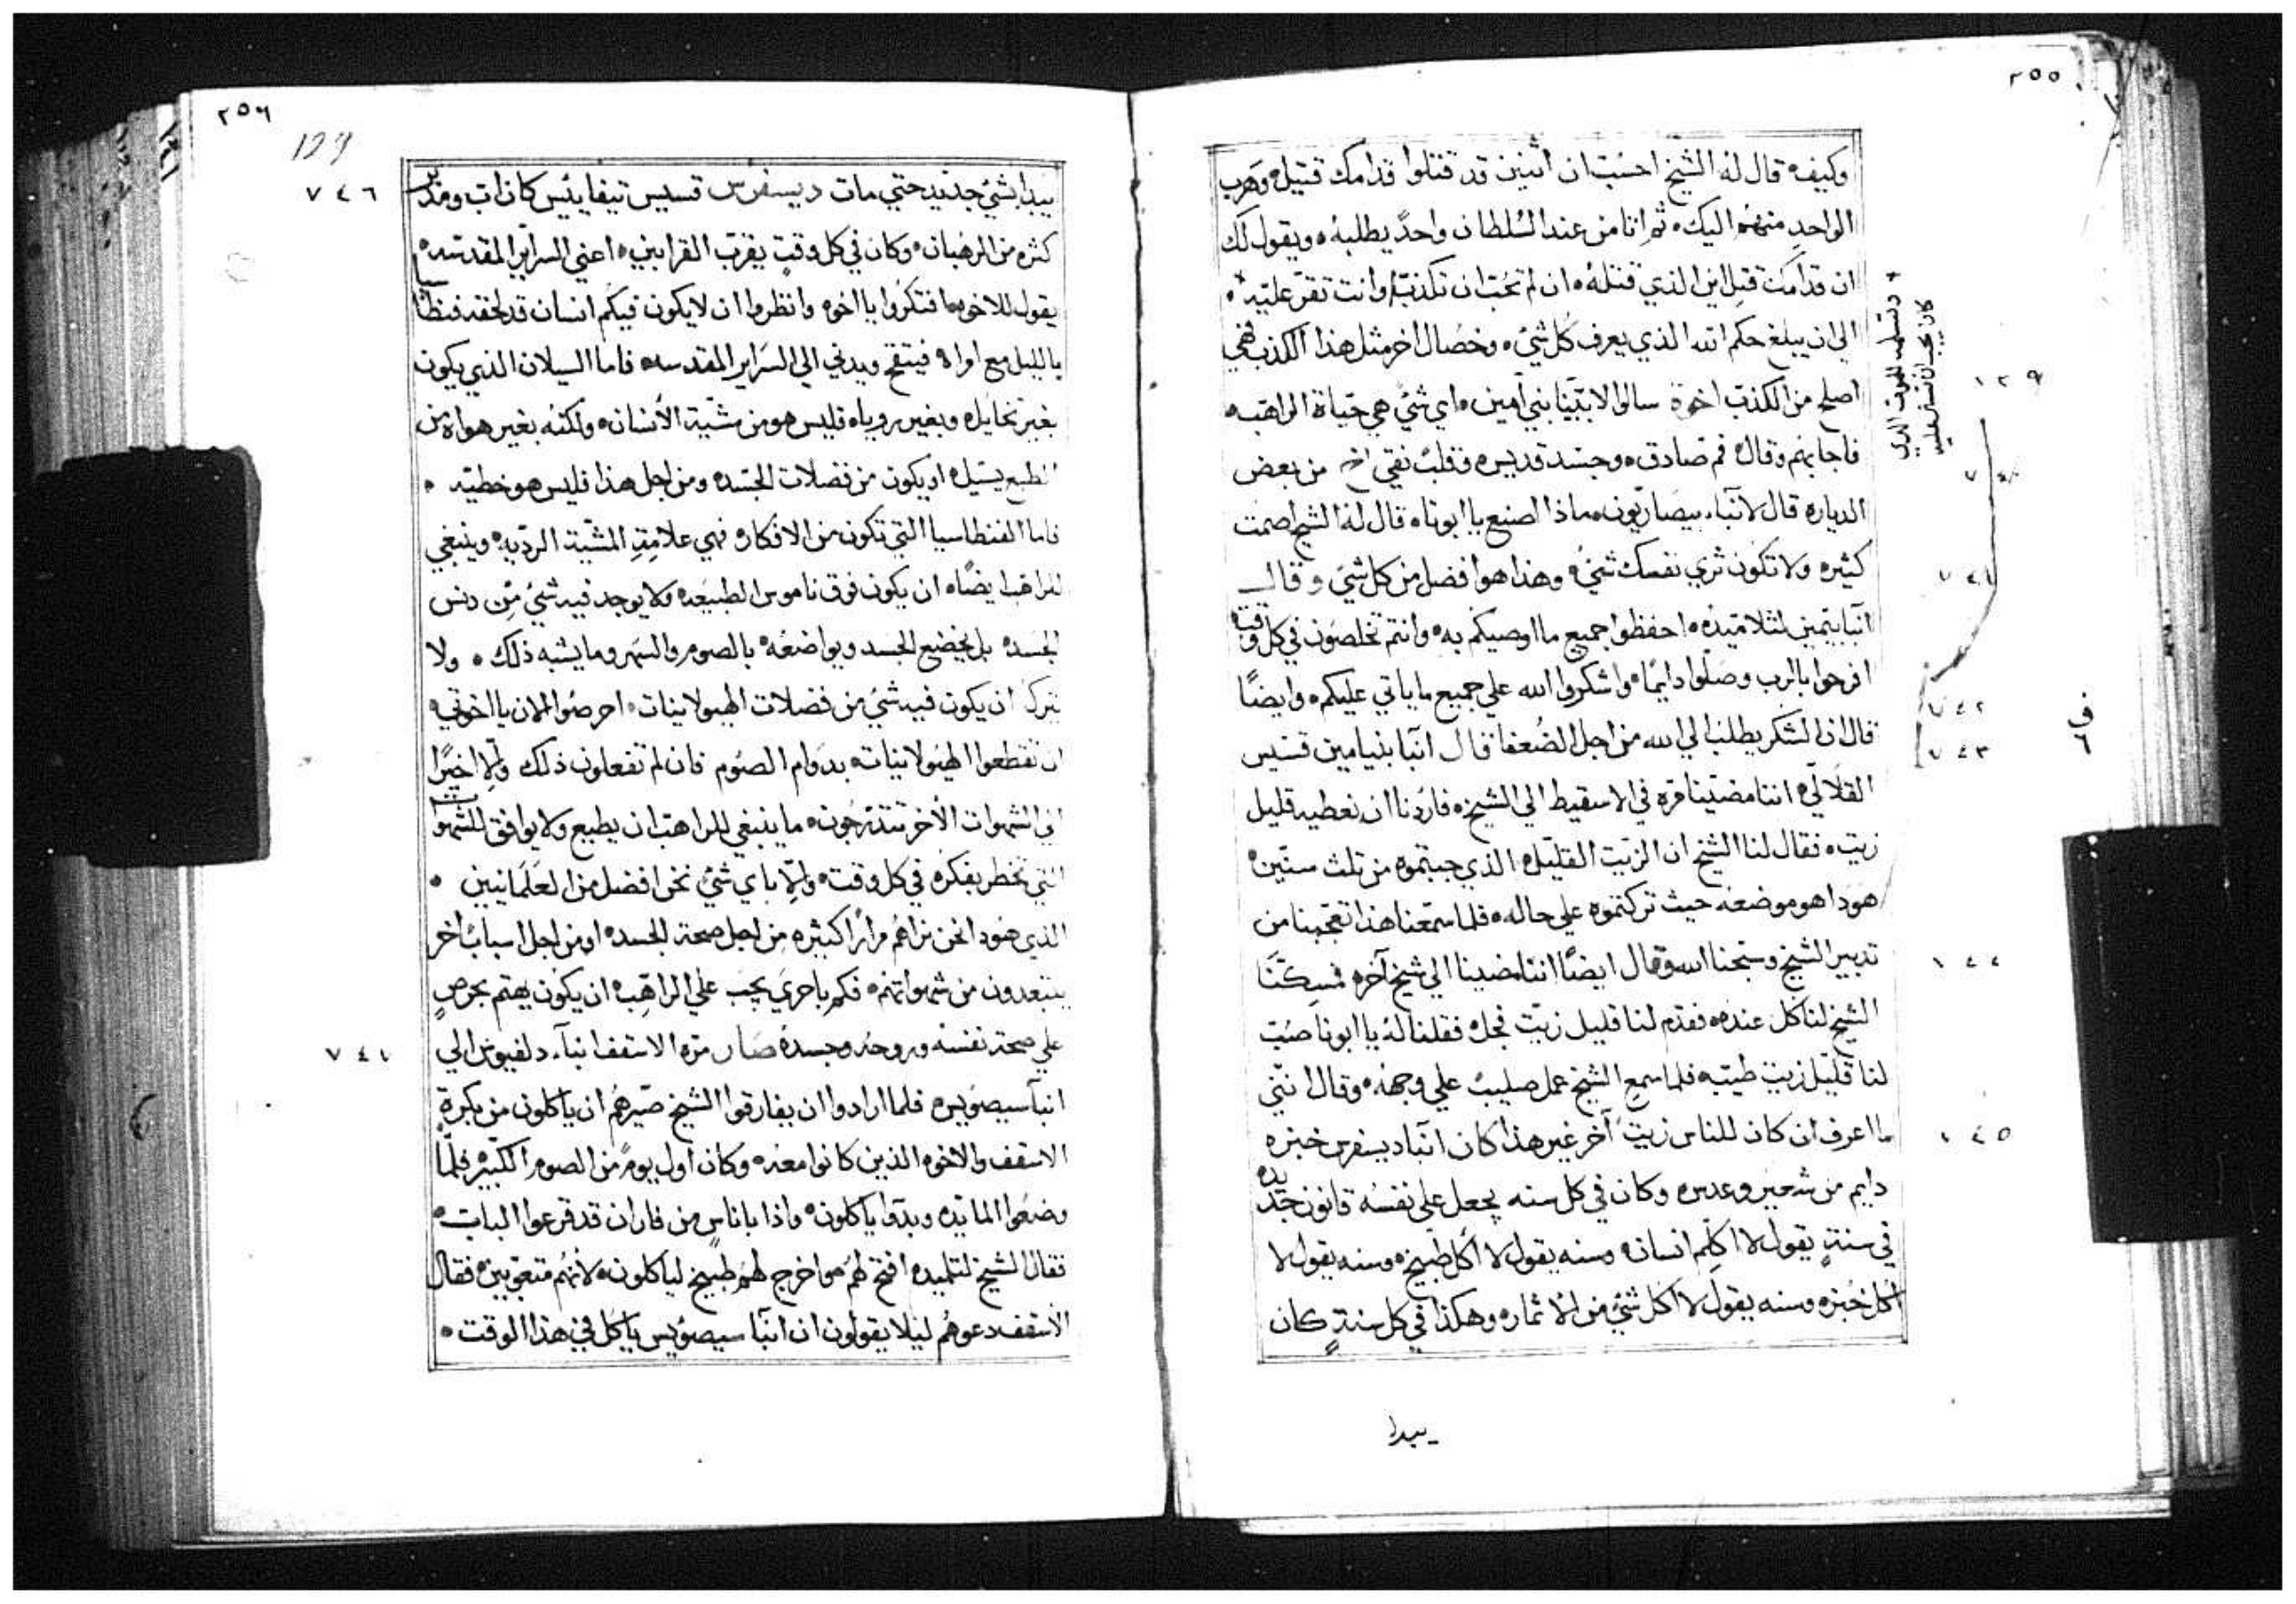 ٢٥٥
وكيف٥ قال له الشيخ احسب ان اثنين قد قتلوا قدامك قتيل٥ وهرب
الواحد منهم اليك٥ ثم اتا من عند السلطان واحدً يطلبه٥ ويقول لك
ان قدامك قتل اين الذي قتله٥ ان لم تحب ان تكذب وانت تقر عليه٥
الي ان يبلغ حكم الله الذي يعرف كل شي٥ وخصال اخر مثل هذا الكذب فهي
اصلح من الكذب اخوة سالوا لابتيّا بني امين٥ اي شي هي حياة الراهب٥
فاجابهم وقال٥ فم صادق٥ وجسد قديس٥ وقلب نقي اخ من بعض
الديار٥ قال لانبا بيصاريون٥ ماذا اصنع يا ابونا٥ قال له الشيخ اصمت
كثيره ولا تكون تري نفسك شي٥ وهذا هو افضل من كل شي وقال
انبا يتمين لتلاميذه٥ احفظوا جميع ما اوصيكم به٥ وانتم تخلصون في كل وقت
افرحوا بالرب وصلوا دايمًا٥ واشكروا الله علي جميع ما ياتي عليكم٥ وايضًا
قال ان الشكر يطلب الي الله من اجل الضعفا قال انبا بنيامين قسيس
القلالي٥ اننا مضينا مره في الاسقيط الي الشيخ٥ فاردنا ان نعطيه قليل
زيت٥ فقال لنا الشيخ ان الزيت القليل٥ الذي جبتموه من ثلث سنين٥
هودا هو موضعه حيث تركتموه علي حاله٥ فلما سمعنا هذا تعجبنا من
تدبير الشيخ وسبحنا الله وقال ايضًا اننا مضينا الي شيخ آخر٥ فمسكنا
الشيخ لناكل عنده٥ فقدم لنا قليل زيت فجل٥ فقلنا له يا ابونا صُبّ
لنا قليل زيت طيب٥ فلما سمع الشيخ عمل صليب علي وجهه٥ وقال انني
ما اعرف ان كان للناس زيت آخر غير هذا كان انبا ديسفرس خبزه
دايم من شعير وعدس٥ وكان في كل سنه يجعل علي نفسه قانون جديده
في سنةٍ يقول لا اكلم انسان٥ وسنه يقول لا اكل طبيخ٥ وسنه يقول لا
اكل خبز٥ وسنه يقول لا اكل شي من الاثمار٥ وهكذا في كل سنةٍ كان
يبدا
٧٤١
٧٤٢
٧٤٣
٢٥٦
129
يبدا بشي جديد حتي مات ديسفرس قسيس تيفاييس كان اب ومدبر
كثره من الرهبان٥ وكان في كل وقت يقرب القرابين٥ اعني السراير المقدسه٥
يقول للاخوه٥ افتكروا يا اخوه وانظروا ان لا يكون فيكم انسان قد لحقه فنطاسيا
بالليل مع امراه فيتقح ويدني الي السراير المقدسه٥ فاما السيلان الذي يكون
بغير تخايل٥ وبغير رويا٥ فليس هو من مشية الانسان٥ ولكنه بغير هواه من
الطبع يسيل٥ او يكون من فضلات الجسد٥ ومن اجل هذا فليس هو خطيه٥
فاما الفنطاسيا التي تكون من الافكار٥ فهي علامة المشية الرديه٥ وينبغي
للراهب ايضًا٥ ان يكون فوق ناموس الطبيعه٥ ولا يوجد فيه شي من دنس
الجسد٥ بل يخضع الجسد ويواضعه٥ بالصوم والسهر وما يشبه ذلك٥ ولا
يترك ان يكون فيه شي من فضلات الهيولانيات٥ احرصوا الان يا اخوتي٥
ان تقطعوا الهيولانيات٥ بدوام الصوم فان لم تفعلون ذلك والا اخيرًا
الي الشهوات الاخر تتدرجون٥ ما ينبغي للراهب ان يطيع ولا يوافق للشهوات
التي تخطر بفكره في كل وقت٥ والا باي شي نحن افضل من العلمانيين٥
الذي هودا نحن نراهم مرارًا كثيره من اجل صحة الجسد٥ او من اجل اسباب اخر
يتبعدون من شهواتهم٥ فكم باحري يجب علي الراهب٥ ان يكون يهتم بحرصٍ
علي صحة نفسه وروحه وجسده صار مره الاسقف انبا دلفيوس الي
انبا سيصويس٥ فلما ارادوا ان يفارقوا الشيخ صيرهم ان ياكلون من بكرةٍ
الاسقف والاخوه الذين كانوا معه٥ وكان اول يومً من الصوم الكبير٥ فلما
وضعوا المايده وبدوا ياكلون٥ واذا باناس من فاران قد قرعوا الباب٥
فقال الشيخ لتلميده افتح لهم واخرج لهم طبيخ لياكلون٥ لانهم متعوبين٥ فقال
الاسقف دعوهم ليلا يقولون ان انبا سيصويس ياكل في هذا الوقت٥
٧٤٦